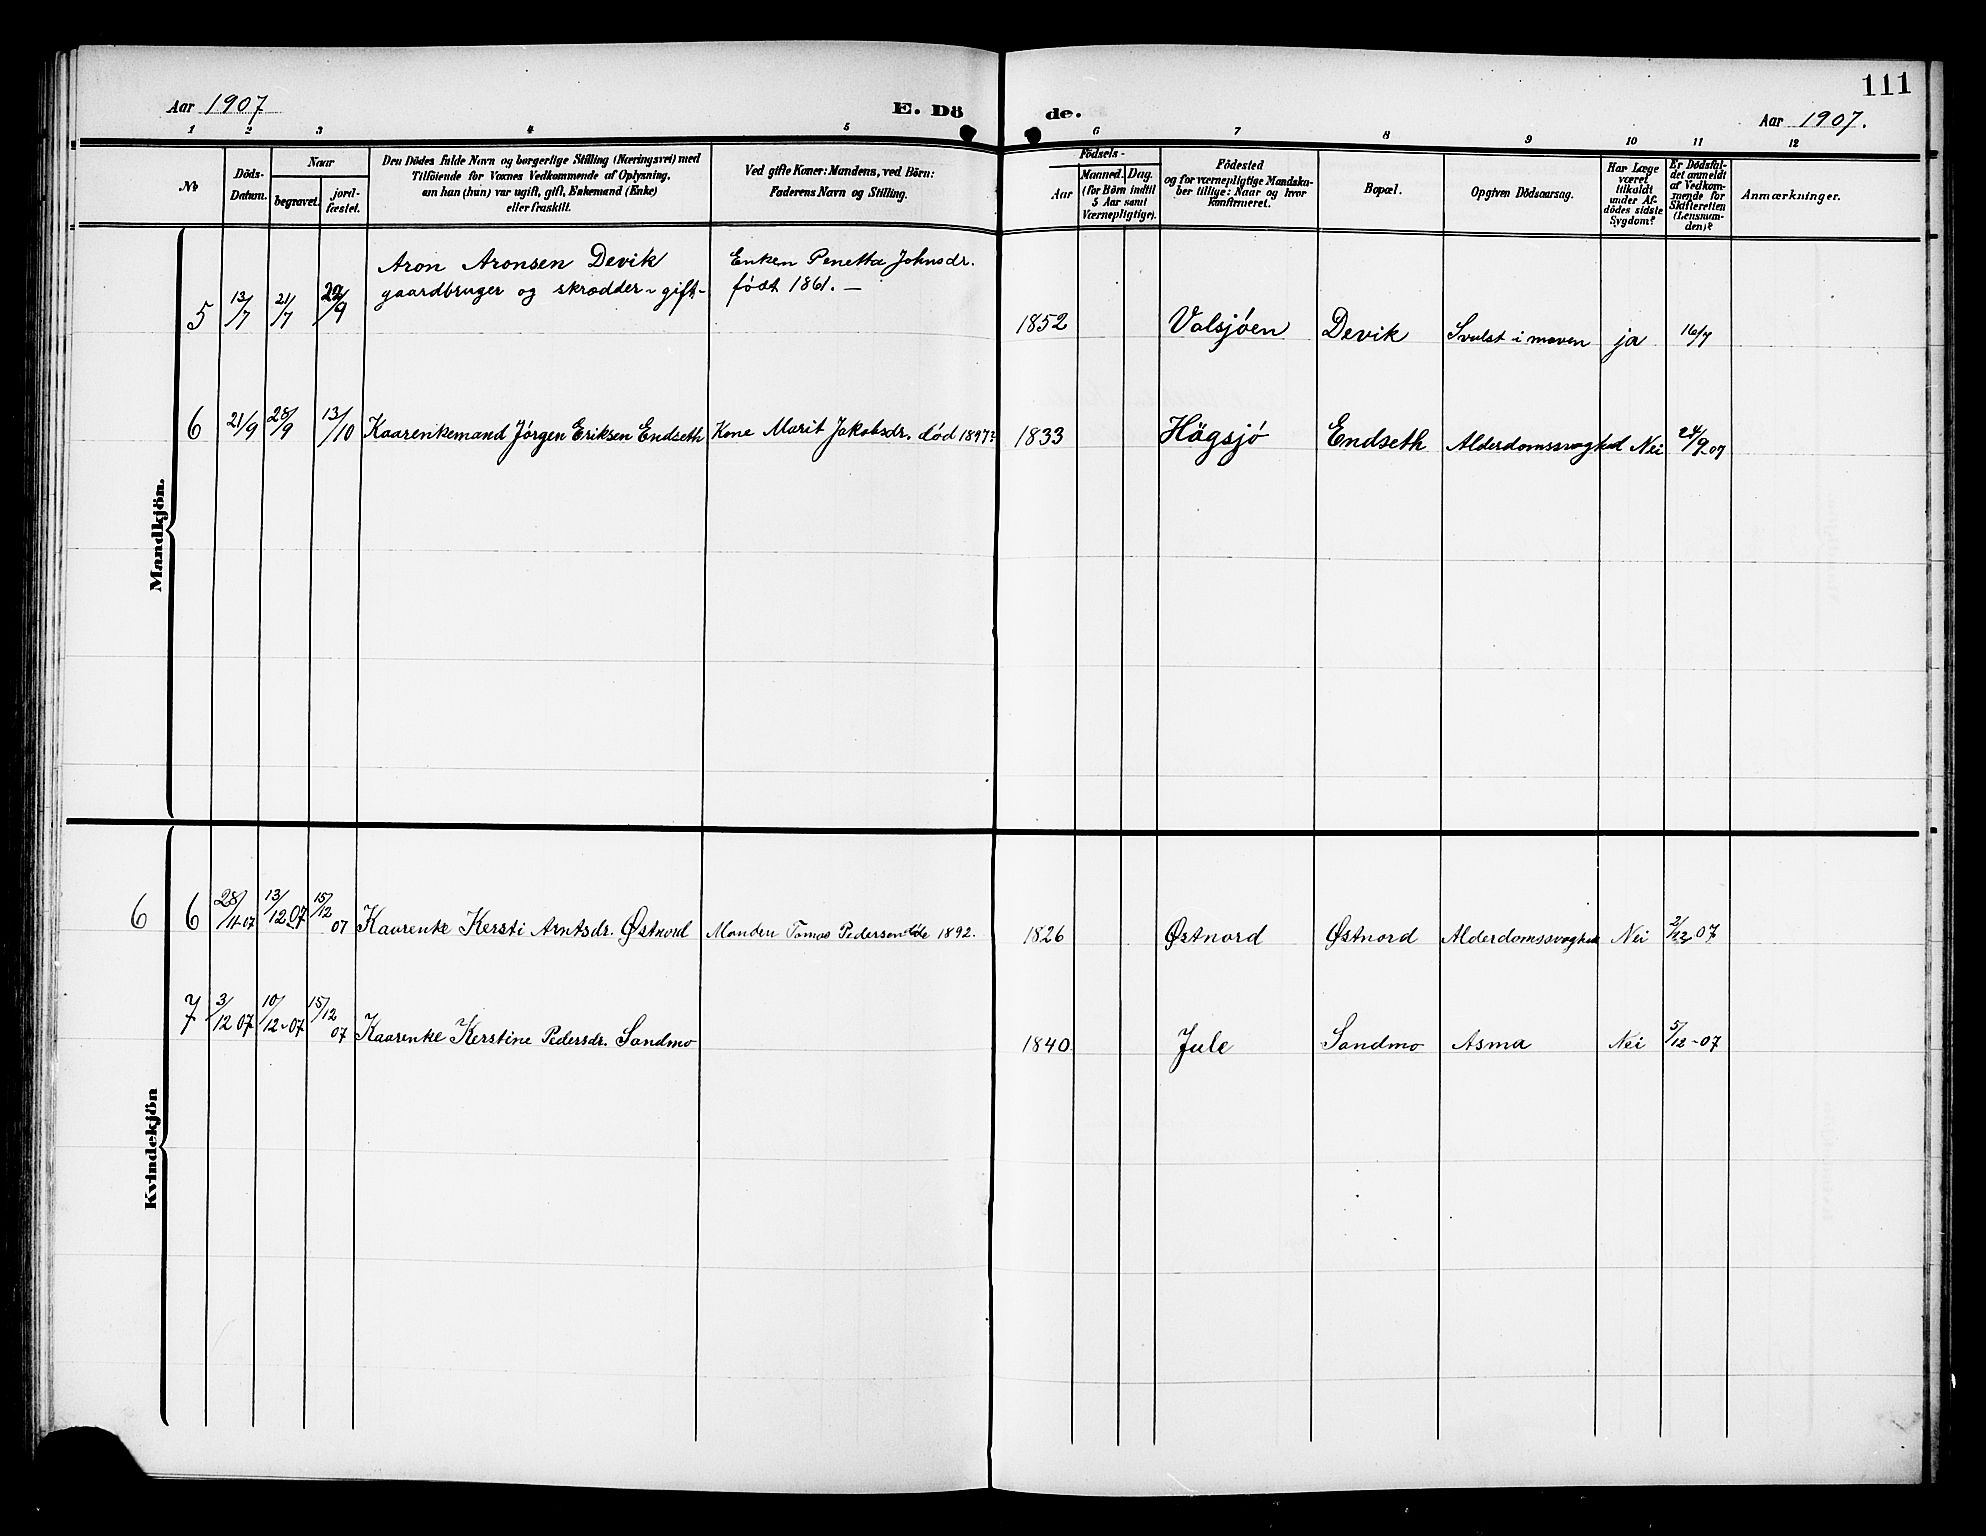 111
Aar 1907
E. Dö
de.
Aar 1907.
1 2 3 4 5 6 7 8 9 10 11 12
No
Döds-
Datum.
Naar
begravet.
jord-
fæstet.
Den Dödes fulde Navn og borgerlige Stilling (Næringsvei) med
Tilföiende for Voxnes Vedkommende af Oplysning,
om han (hun) var ugift, gift, Enkemand (Enke)
eller fraskilt.
Ved gifte Koner: Mandens, ved Börn:
Faderens Navn og Stilling.
Födsels-
Aar
Maaned.
Dag.
(for Börn indtil
5 Aar samt
Værnepligtige).
Födested
og for værnepligtige Mandska-
ber tillige: Naar og hvor
konfirmeret.
Bopæl.
Opgiven Dödsaarsag.
Har Læge
været
tilkaldt
under Af-
dödes sidste
Sygdom?
Er Dödsfal-
det anmeldt
af Vedkom-
mende for
Skifteretten
(Lensman-
den)?
Anmærkninger.
Mandkjön.
Aron Aronsen Devik
gaardbruger og skrædder - gift -
Enken Penetta Johnsdr.
født 1861. -
5 13/7 21/7 22/9
1852 Valsjøen Devik Svulst i maven ja 16/7
6 21/9 28/9 13/10 Kaarenkemand Jørgen Eriksen Endseth Kone Marit Jakobsdr. død 1897? 1833 Hägsjø Endseth Alderdomssvaghed Nei 24/9-07
Kvindekjön
6 6 28/11 07 13/12 07 15/12 07 Kaarenke Kersti Arntsdr. Østnord Manden Tomas Pedersen døde 1892. 1826 Østnord Østnord Alderdomssvaghed Nei 2/12 07
7 3/12 07 10/12-07 15/12 07 Kaarenke Kerstine Pedersdr. Sandmo 1840 Jule Sandmo Asma Nei 5/12-07